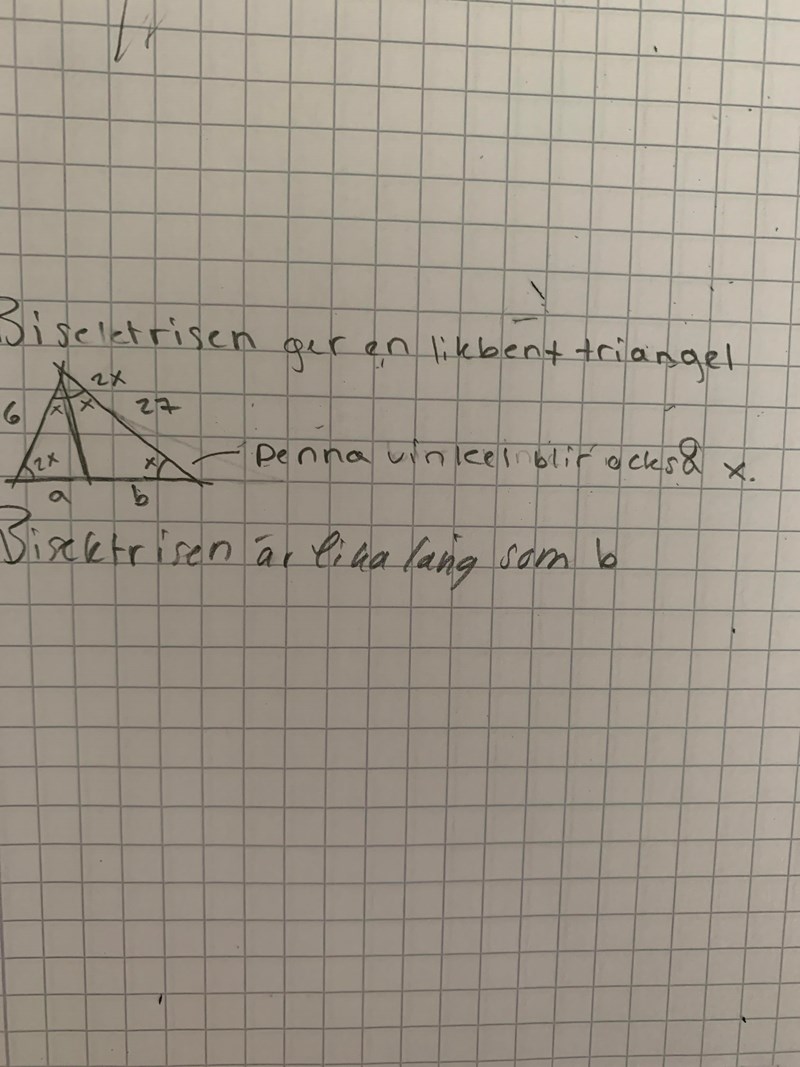 Bisektrisen ger en likbent triangel
2x
6 x x 27
2x x Denna vinkeln blir också x.
a b
Bisektrisen är lika lång som b